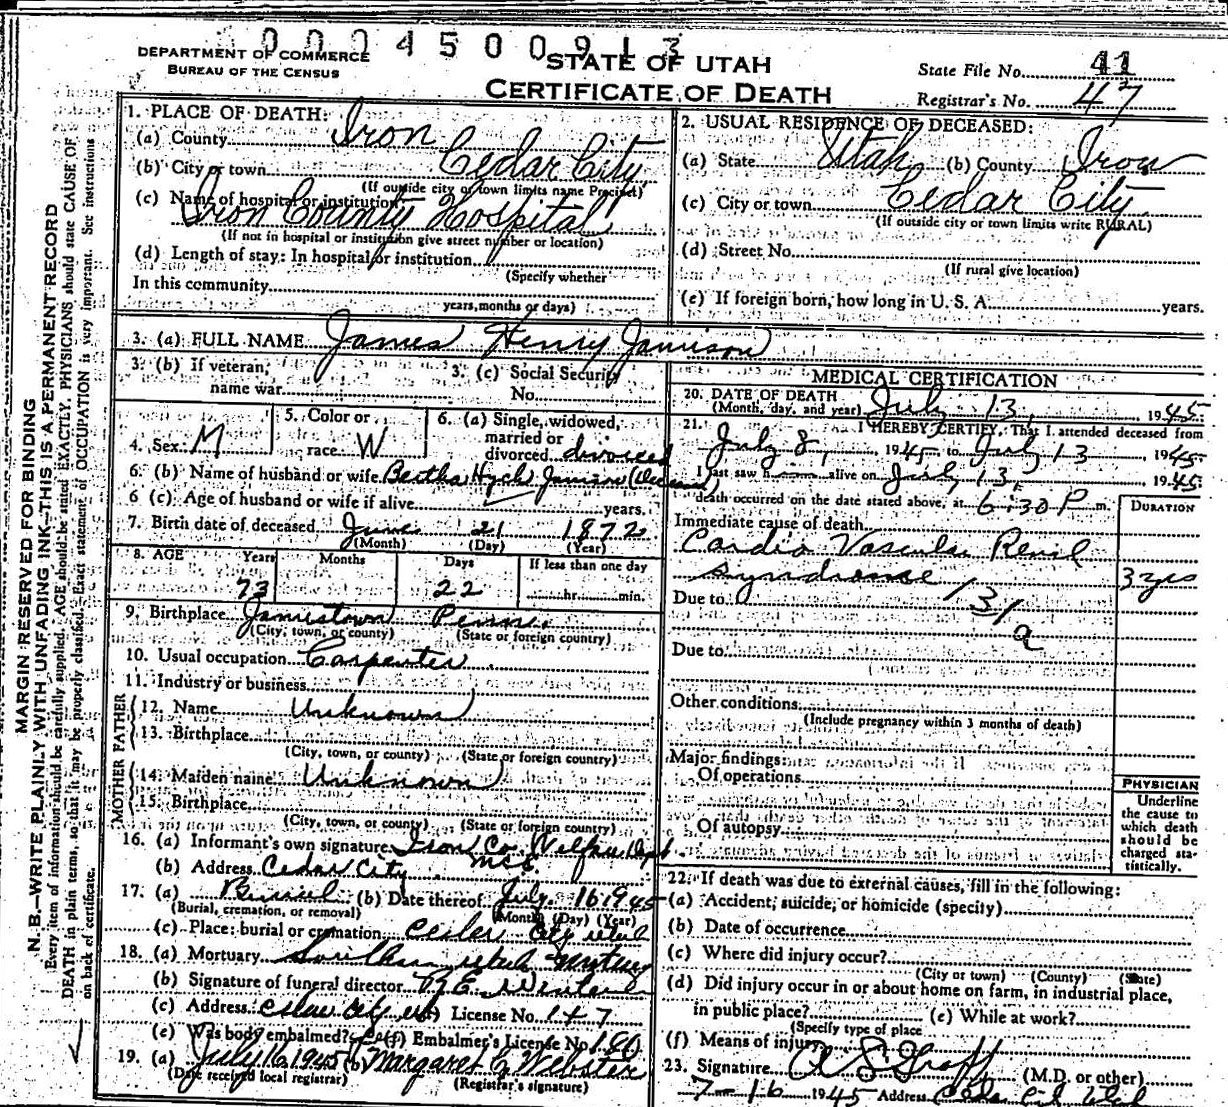 000450091 3
DEPARTMENT OF COMMERCE
BUREAU OF THE CENSUS
STATE OF UTAH
CERTIFICATE OF DEATH
State File No. 41
Registrar's No. 47
MARGIN RESERVED FOR BINDING
N. B.—WRITE PLAINLY WITH UNFADING INK—THIS IS A PERMANENT RECORD
Every item of information should be carefully supplied. AGE should be stated EXACTLY. PHYSICIANS should state CAUSE OF
DEATH in plain terms, so that it may be properly classified. Exact statement of OCCUPATION is very important. See instructions
on back of certificate.
1. PLACE OF DEATH:
(a) County Iron
(b) City or town Cedar City
(If outside city or town limits name Precinct)
(c) Name of hospital or institution:
Iron County Hospital
(If not in hospital or institution give street number or location)
(d) Length of stay: In hospital or institution
(Specify whether
In this community
years, months or days)
2. USUAL RESIDENCE OF DECEASED:
(a) State Utah (b) County Iron
(c) City or town Cedar City
(If outside city or town limits write RURAL)
(d) Street No.
(If rural give location)
(e) If foreign born, how long in U. S. A. years.
3. (a) FULL NAME James Henry Jamison
3. (b) If veteran,
name war
3. (c) Social Security
No.
4. Sex M
5. Color or
race W
6. (a) Single, widowed,
married or
divorced divorced
6. (b) Name of husband or wife Bertha Jamison
6 (c). Age of husband or wife if alive years.
7. Birth date of deceased June 21 1872
(Month) (Day) (Year)
8. AGE Years Months Days If less than one day
73 22 hr. min.
9. Birthplace Jamestown Penn.
(City, town, or county) (State or foreign country)
10. Usual occupation Carpenter
11. Industry or business
FATHER
12. Name Unknown
13. Birthplace
(City, town, or county) (State or foreign country)
MOTHER
14. Maiden name Unknown
15. Birthplace
(City, town, or county) (State or foreign country)
16. (a) Informant's own signature Iron Co. Welfare Dept.
(b) Address Cedar City
17. (a) Burial (b) Date thereof July 16 1945
(Burial, cremation, or removal) (Month) (Day) (Year)
(c) Place: burial or cremation Cedar City Utah
18. (a) Mortuary Southern Utah Mortuary
(b) Signature of funeral director
(c) Address Cedar City Ut License No. 147
(e) Was body embalmed? (f) Embalmer's License No. 190
19. (a) July 16 1945 (b) Margaret C Webster
(Date received local registrar) (Registrar's signature)
MEDICAL CERTIFICATION
20. DATE OF DEATH
(Month, day, and year) July 13, 1945
21. I HEREBY CERTIFY, That I attended deceased from
July 8, 1945 to July 13 1945
I last saw h alive on July 13, 1945
death occurred on the date stated above, at 6:30 P m.
DURATION
Immediate cause of death
Cardio Vascular Renal
syndrome 3 yrs
131
a
Due to
Due to
Other conditions
(Include pregnancy within 3 months of death)
Major findings:
Of operations
Of autopsy
PHYSICIAN
Underline
the cause to
which death
should be
charged sta-
tistically.
22. If death was due to external causes, fill in the following:
(a) Accident, suicide, or homicide (specify)
(b) Date of occurrence
(c) Where did injury occur?
(City or town) (County) (State)
(d) Did injury occur in or about home on farm, in industrial place,
in public place? (e) While at work?
(Specify type of place
(f) Means of injury
23. Signature (M.D. or other)
7-16 1945 Address Cedar City Utah